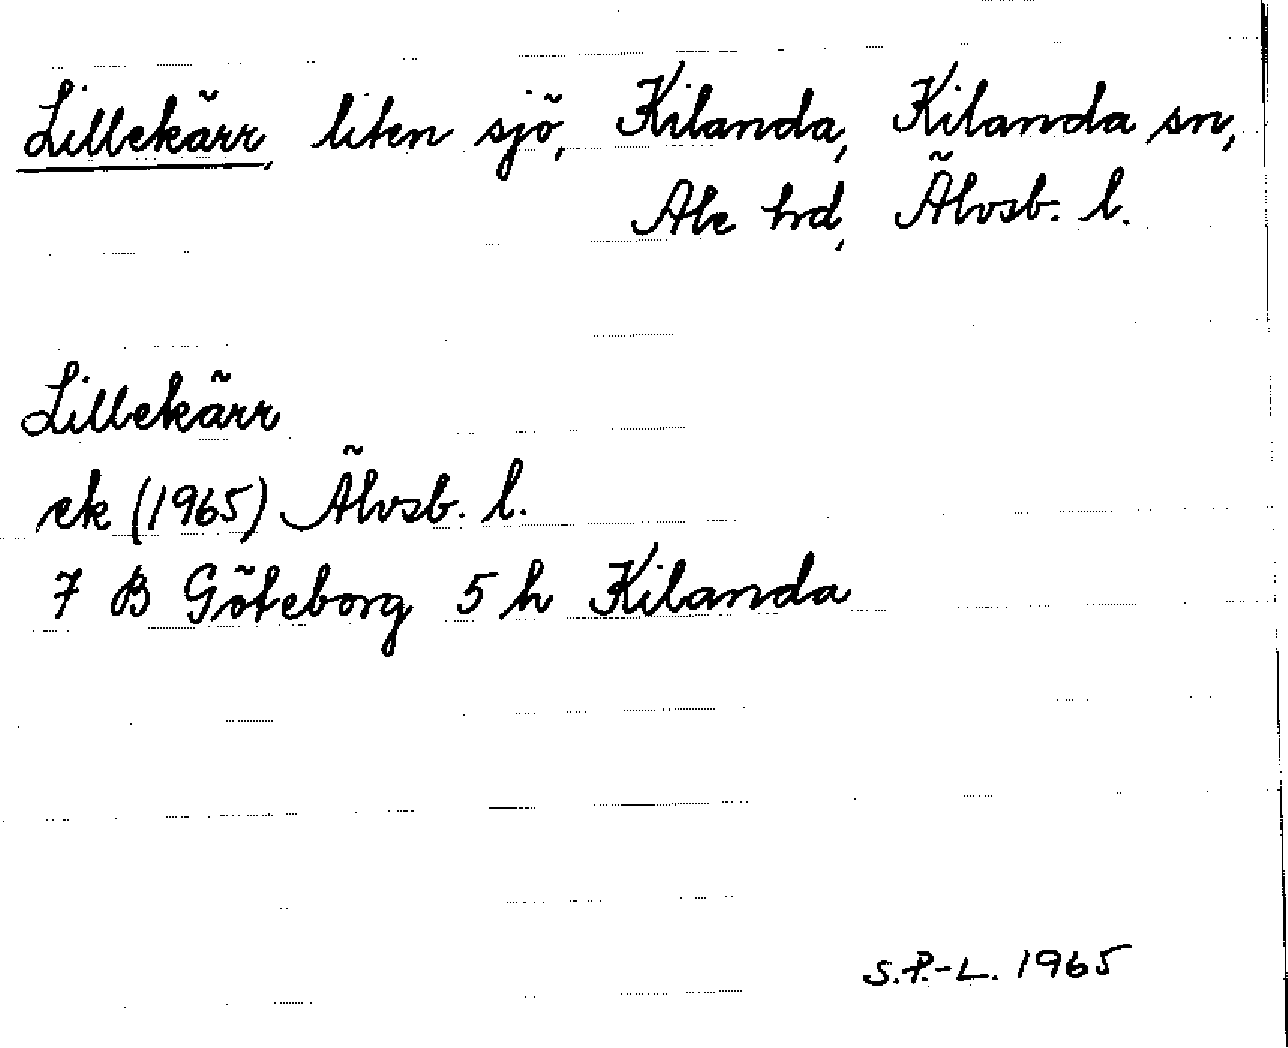 Lillekärr, liten sjö, Kilanda, Kilanda sn,
Ale hrd, Älvsb. l.
Lillekärr
ek (1965) Älvsb. l.
7 B Göteborg 5 h Kilanda
S.P.-L. 1965